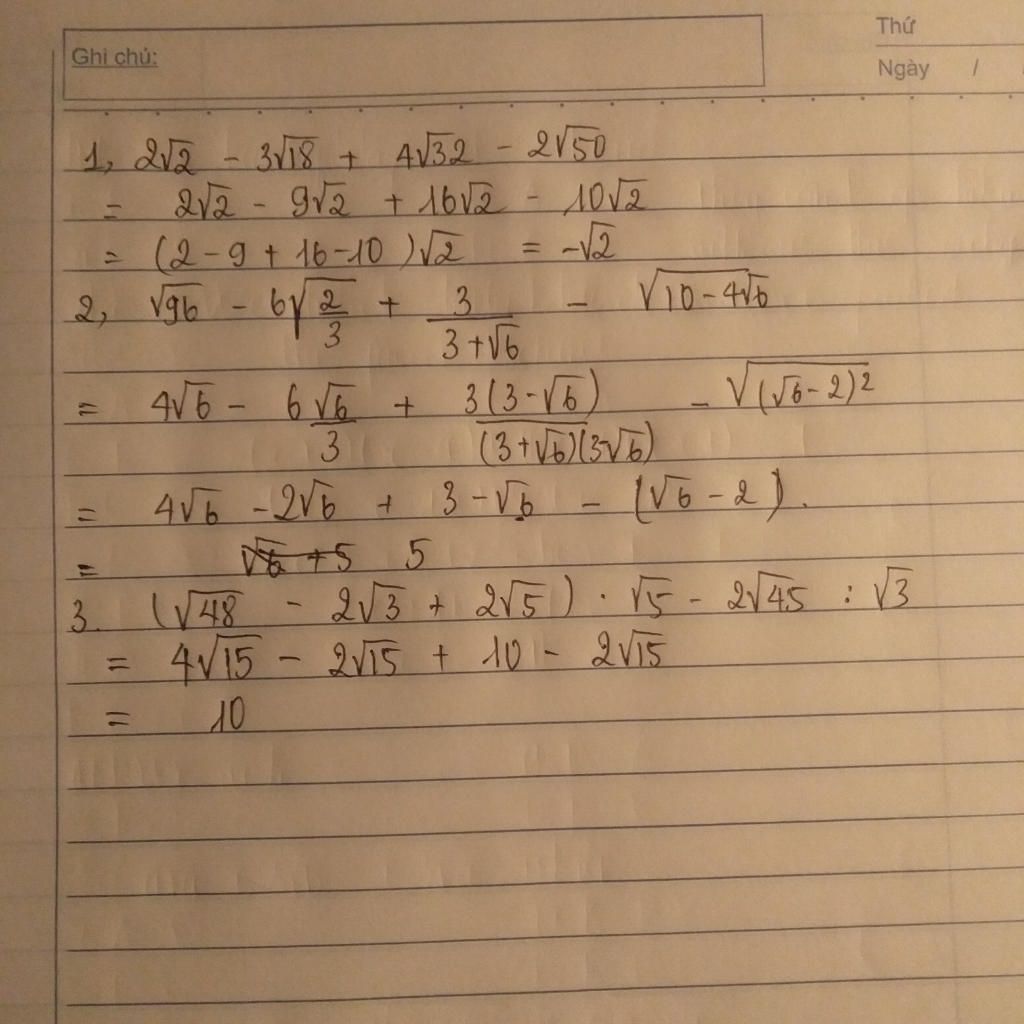 Ghi chú:
Thứ
Ngày /
1, 2√2 - 3√18 + 4√32 - 2√50
= 2√2 - 9√2 + 16√2 - 10√2
= (2 - 9 + 16 - 10)√2 = -√2
2, √96 - 6√(2/3) + 3/(3+√6) - √(10 - 4√6)
= 4√6 - 6√6/3 + 3(3-√6)/((3+√6)(3-√6)) - √((√6-2)²)
= 4√6 - 2√6 + 3 - √6 - (√6 - 2).
= √6 + 5 5
3. (√48 - 2√3 + 2√5) . √5 - 2√45 : √3
= 4√15 - 2√15 + 10 - 2√15
= 10